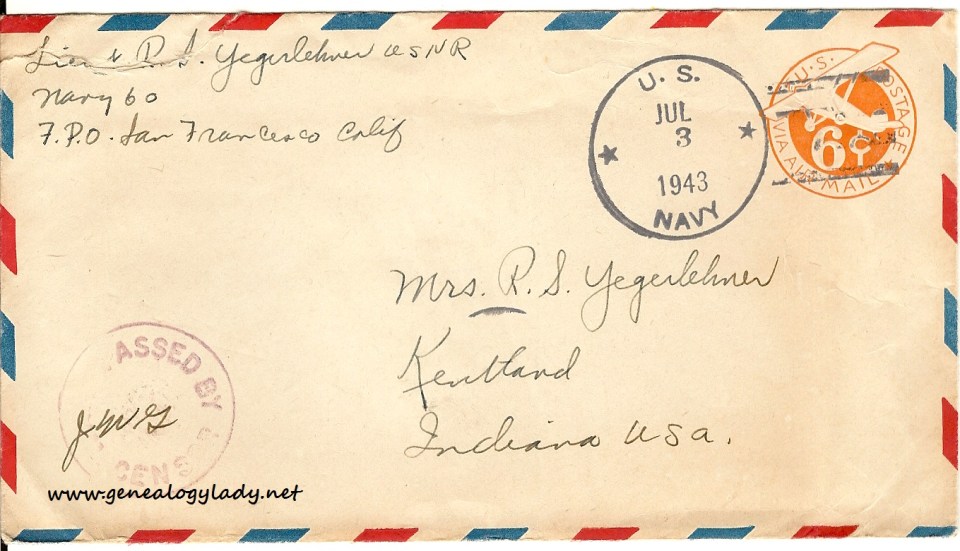 Lieut R. S. Yegerlehner USNR
Navy 60
F.P.O. San Francesco Calif
U. S.
JUL
3
1943
NAVY
U.S. POSTAGE
6¢
VIA AIR MAIL
Mrs. R. S. Yegerlehner
Kentland
Indiana USA.
PASSED BY
CENS
JWG
www.genealogylady.net